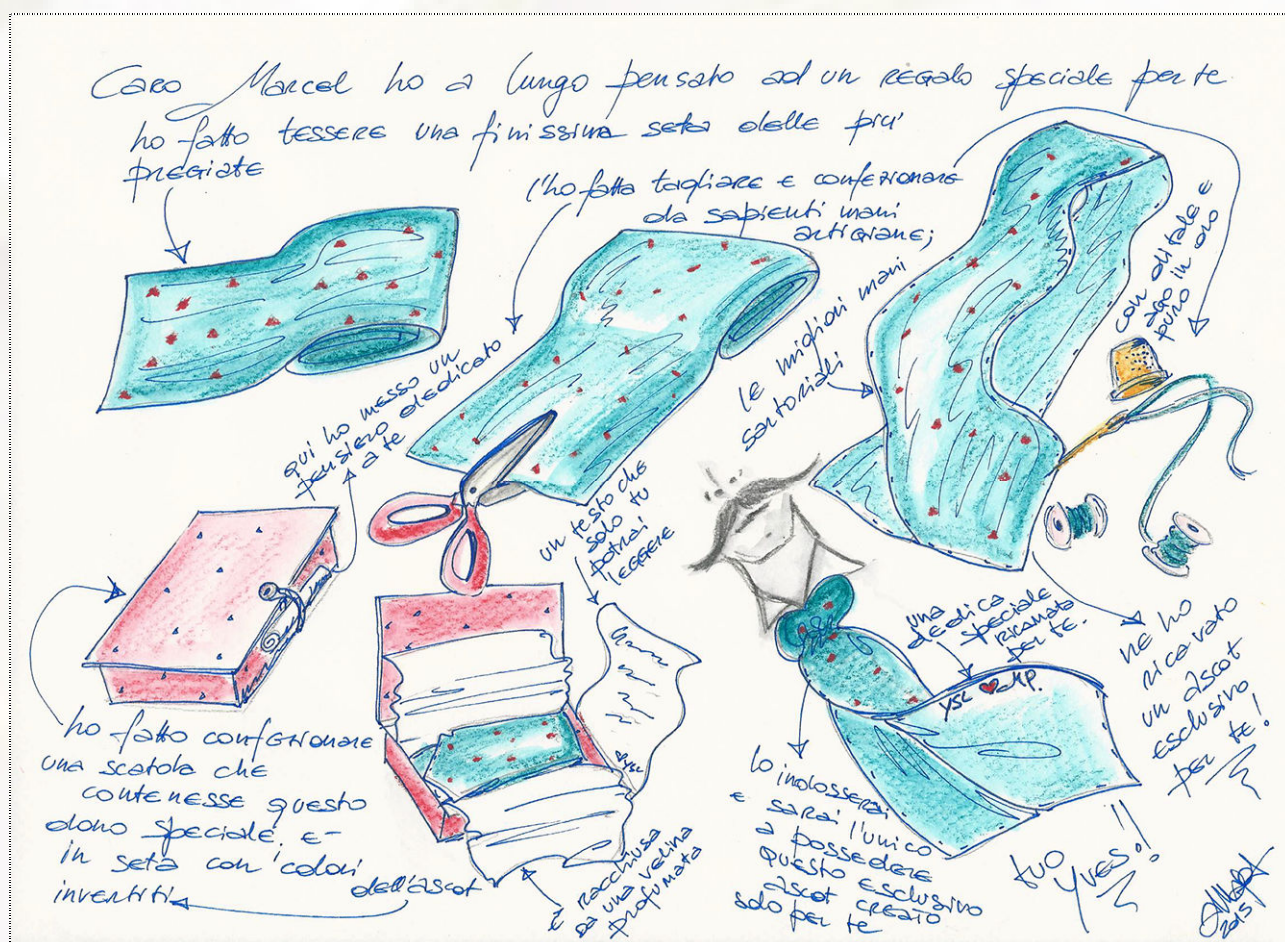 Caro Marcel ho a lungo pensato ad un regalo speciale per te
ho fatto tessere una finissima seta delle più
pregiate
l'ho fatta tagliare e confezionare
da sapienti mani
artigiane;
le migliori mani
sartoriali
con ditale e
ago in oro
puro
qui ho messo un
pensiero dedicato
a te
un testo che
solo tu
potrai
leggere
una
dedica
speciale
ricamata
per te.
YSL MP.
ne ho
ricavato
un ascot
esclusivo
per te!
ho fatto confezionare
una scatola che
contenesse questo
dono speciale, e-
in seta con i colori
invertiti
dell'ascot
YSL
è racchiusa
da una velina
profumata
lo indosserai
e sarai l'unico
a possedere
questo esclusivo
ascot creato
solo per te
tuo
Yves!!
2015